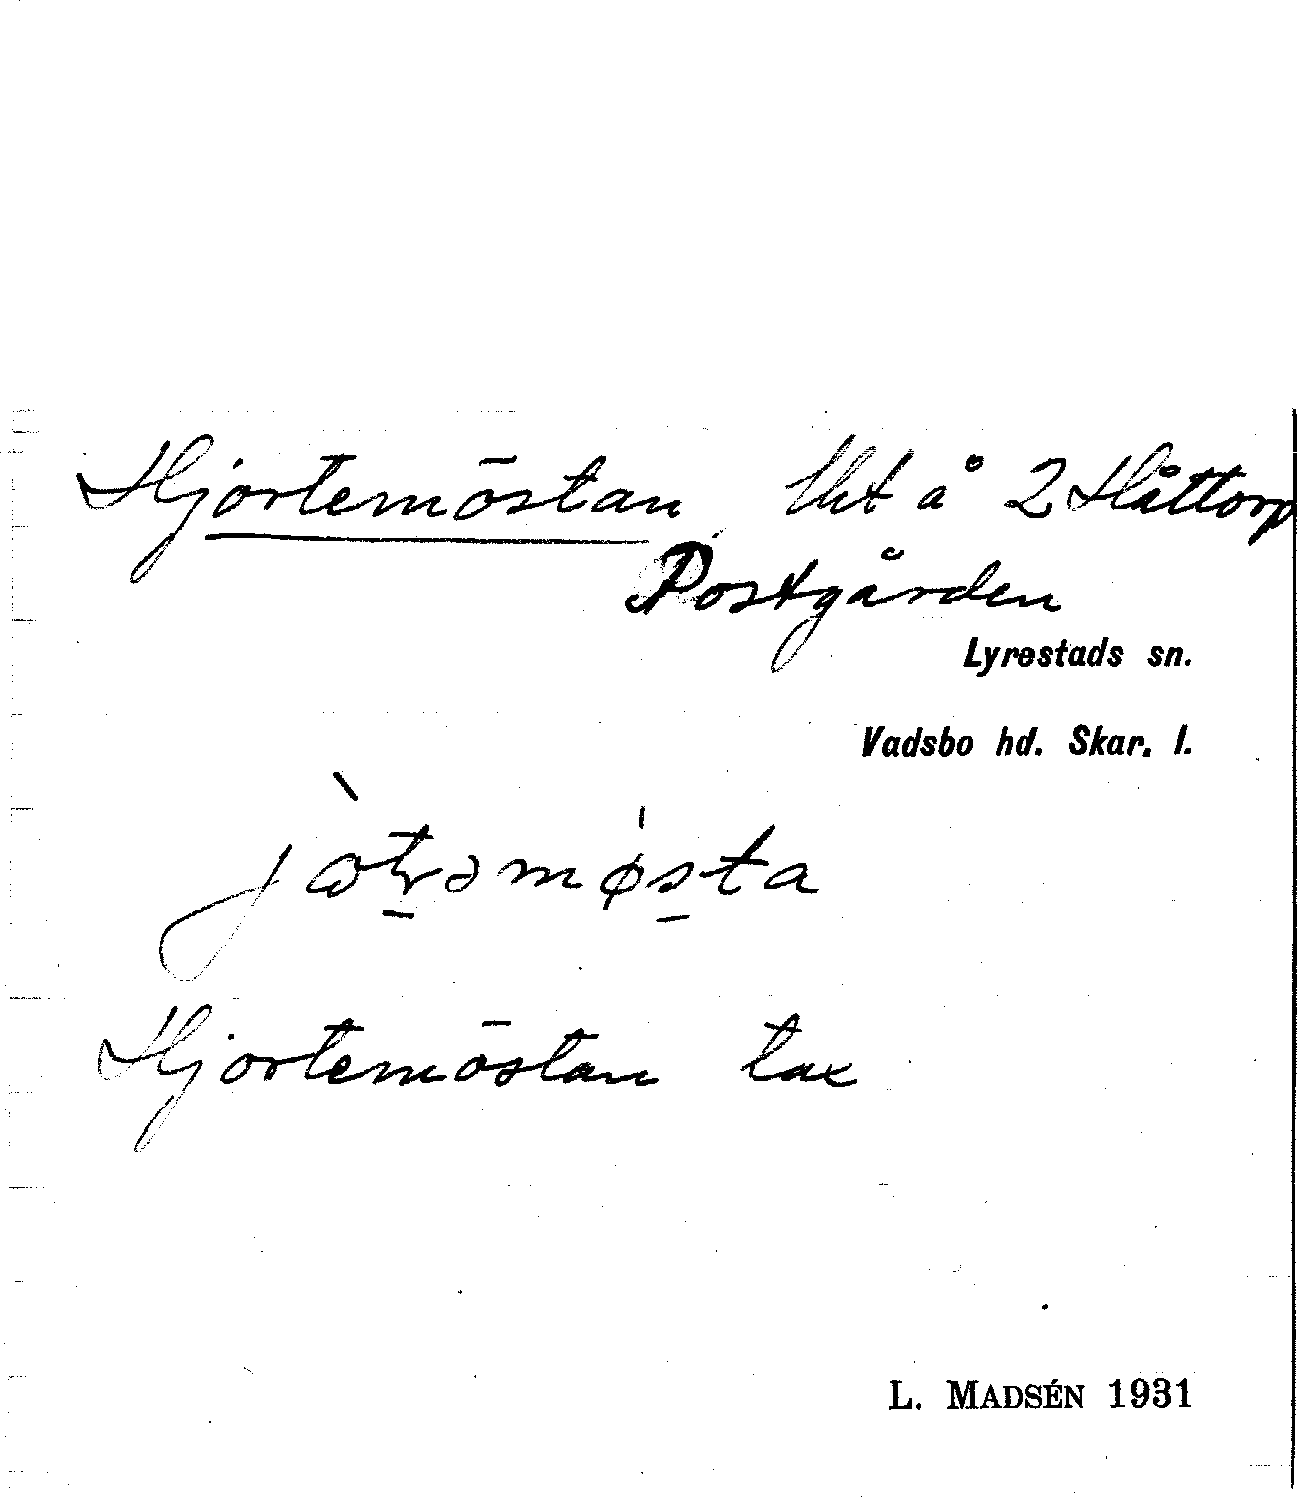 Hjortemōstan lht å 2 Håttorp
Postgården
Lyrestads sn.
Vadsbo hd. Skar. l.
Hjortemōstan tax
L. MADSÉN 1931